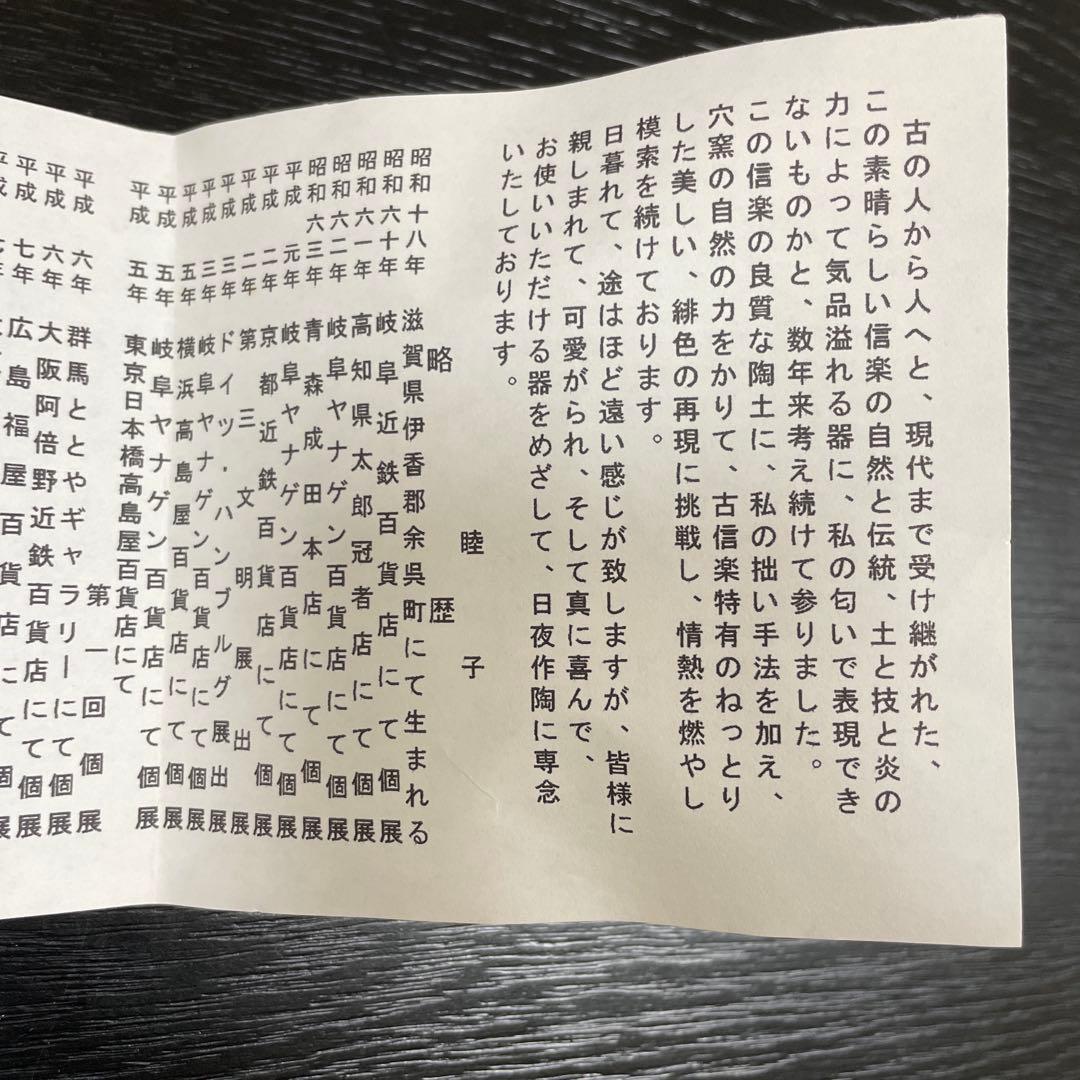 古の人から人へと、現代まで受け継がれた、
この素晴らしい信楽の自然と伝統、土と技と炎の
力によって気品溢れる器に、私の匂いで表現でき
ないものかと、数年来考え続けて参りました。
この信楽の良質な陶土に、私の拙い手法を加え、
穴窯の自然の力をかりて、古信楽特有のねっとり
した美しい、緋色の再現に挑戦し、情熱を燃やし
模索を続けております。
日暮れて、途はほど遠い感じが致しますが、皆様に
親しまれて、可愛がられ、そして真に喜んで、
お使いいただける器をめざして、日夜作陶に専念
いたしております。
睦子
略歴
昭和十八年 滋賀県伊香郡余呉町にて生まれる
昭和六十年 岐阜近鉄百貨店にて個展
昭和六一年 高知県太郎冠者店にて個展
昭和六二年 岐阜ヤナゲン百貨店にて個展
昭和六三年 青森成田本店にて個展
平成元年 岐阜ヤナゲン百貨店にて個展
平成二年 京都近鉄百貨店にて個展
平成二年 第三文明展出展
平成三年 ドイツ・ハンブルグ展出展
平成三年 岐阜ヤナゲン百貨店にて個展
平成五年 横浜高島屋百貨店にて個展
平成五年 岐阜ヤナゲン百貨店にて個展
平成五年 東京日本橋高島屋百貨店にて
第一回個展
平成六年 群馬ととやギャラリーにて個展
平成六年 大阪阿倍野近鉄百貨店にて個展
平成七年 広島福屋百貨店にて個展